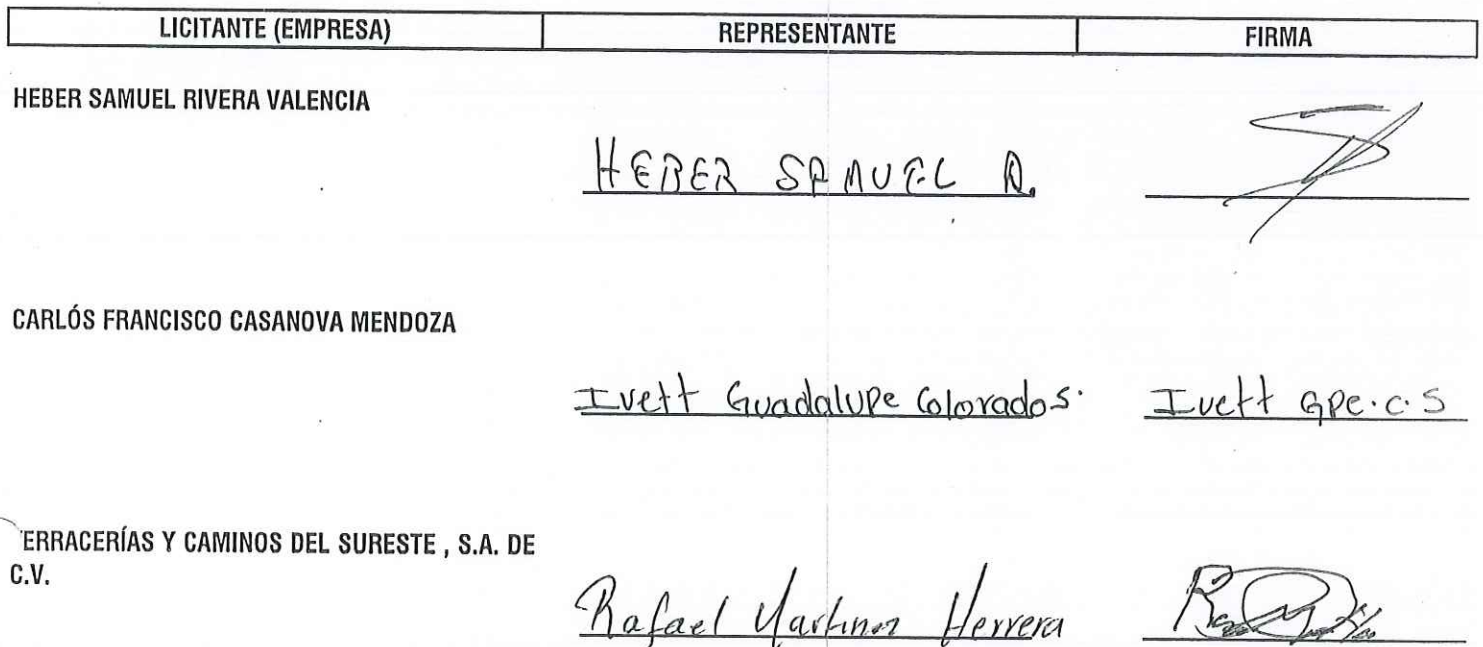 LICITANTE (EMPRESA) REPRESENTANTE FIRMA
HEBER SAMUEL RIVERA VALENCIA
HEBER SAMUEL R.
CARLÓS FRANCISCO CASANOVA MENDOZA
Ivett Guadalupe Colorado S. Ivett Gpe. C. S
ERRACERÍAS Y CAMINOS DEL SURESTE , S.A. DE
C.V.
Rafael Martinez Herrera